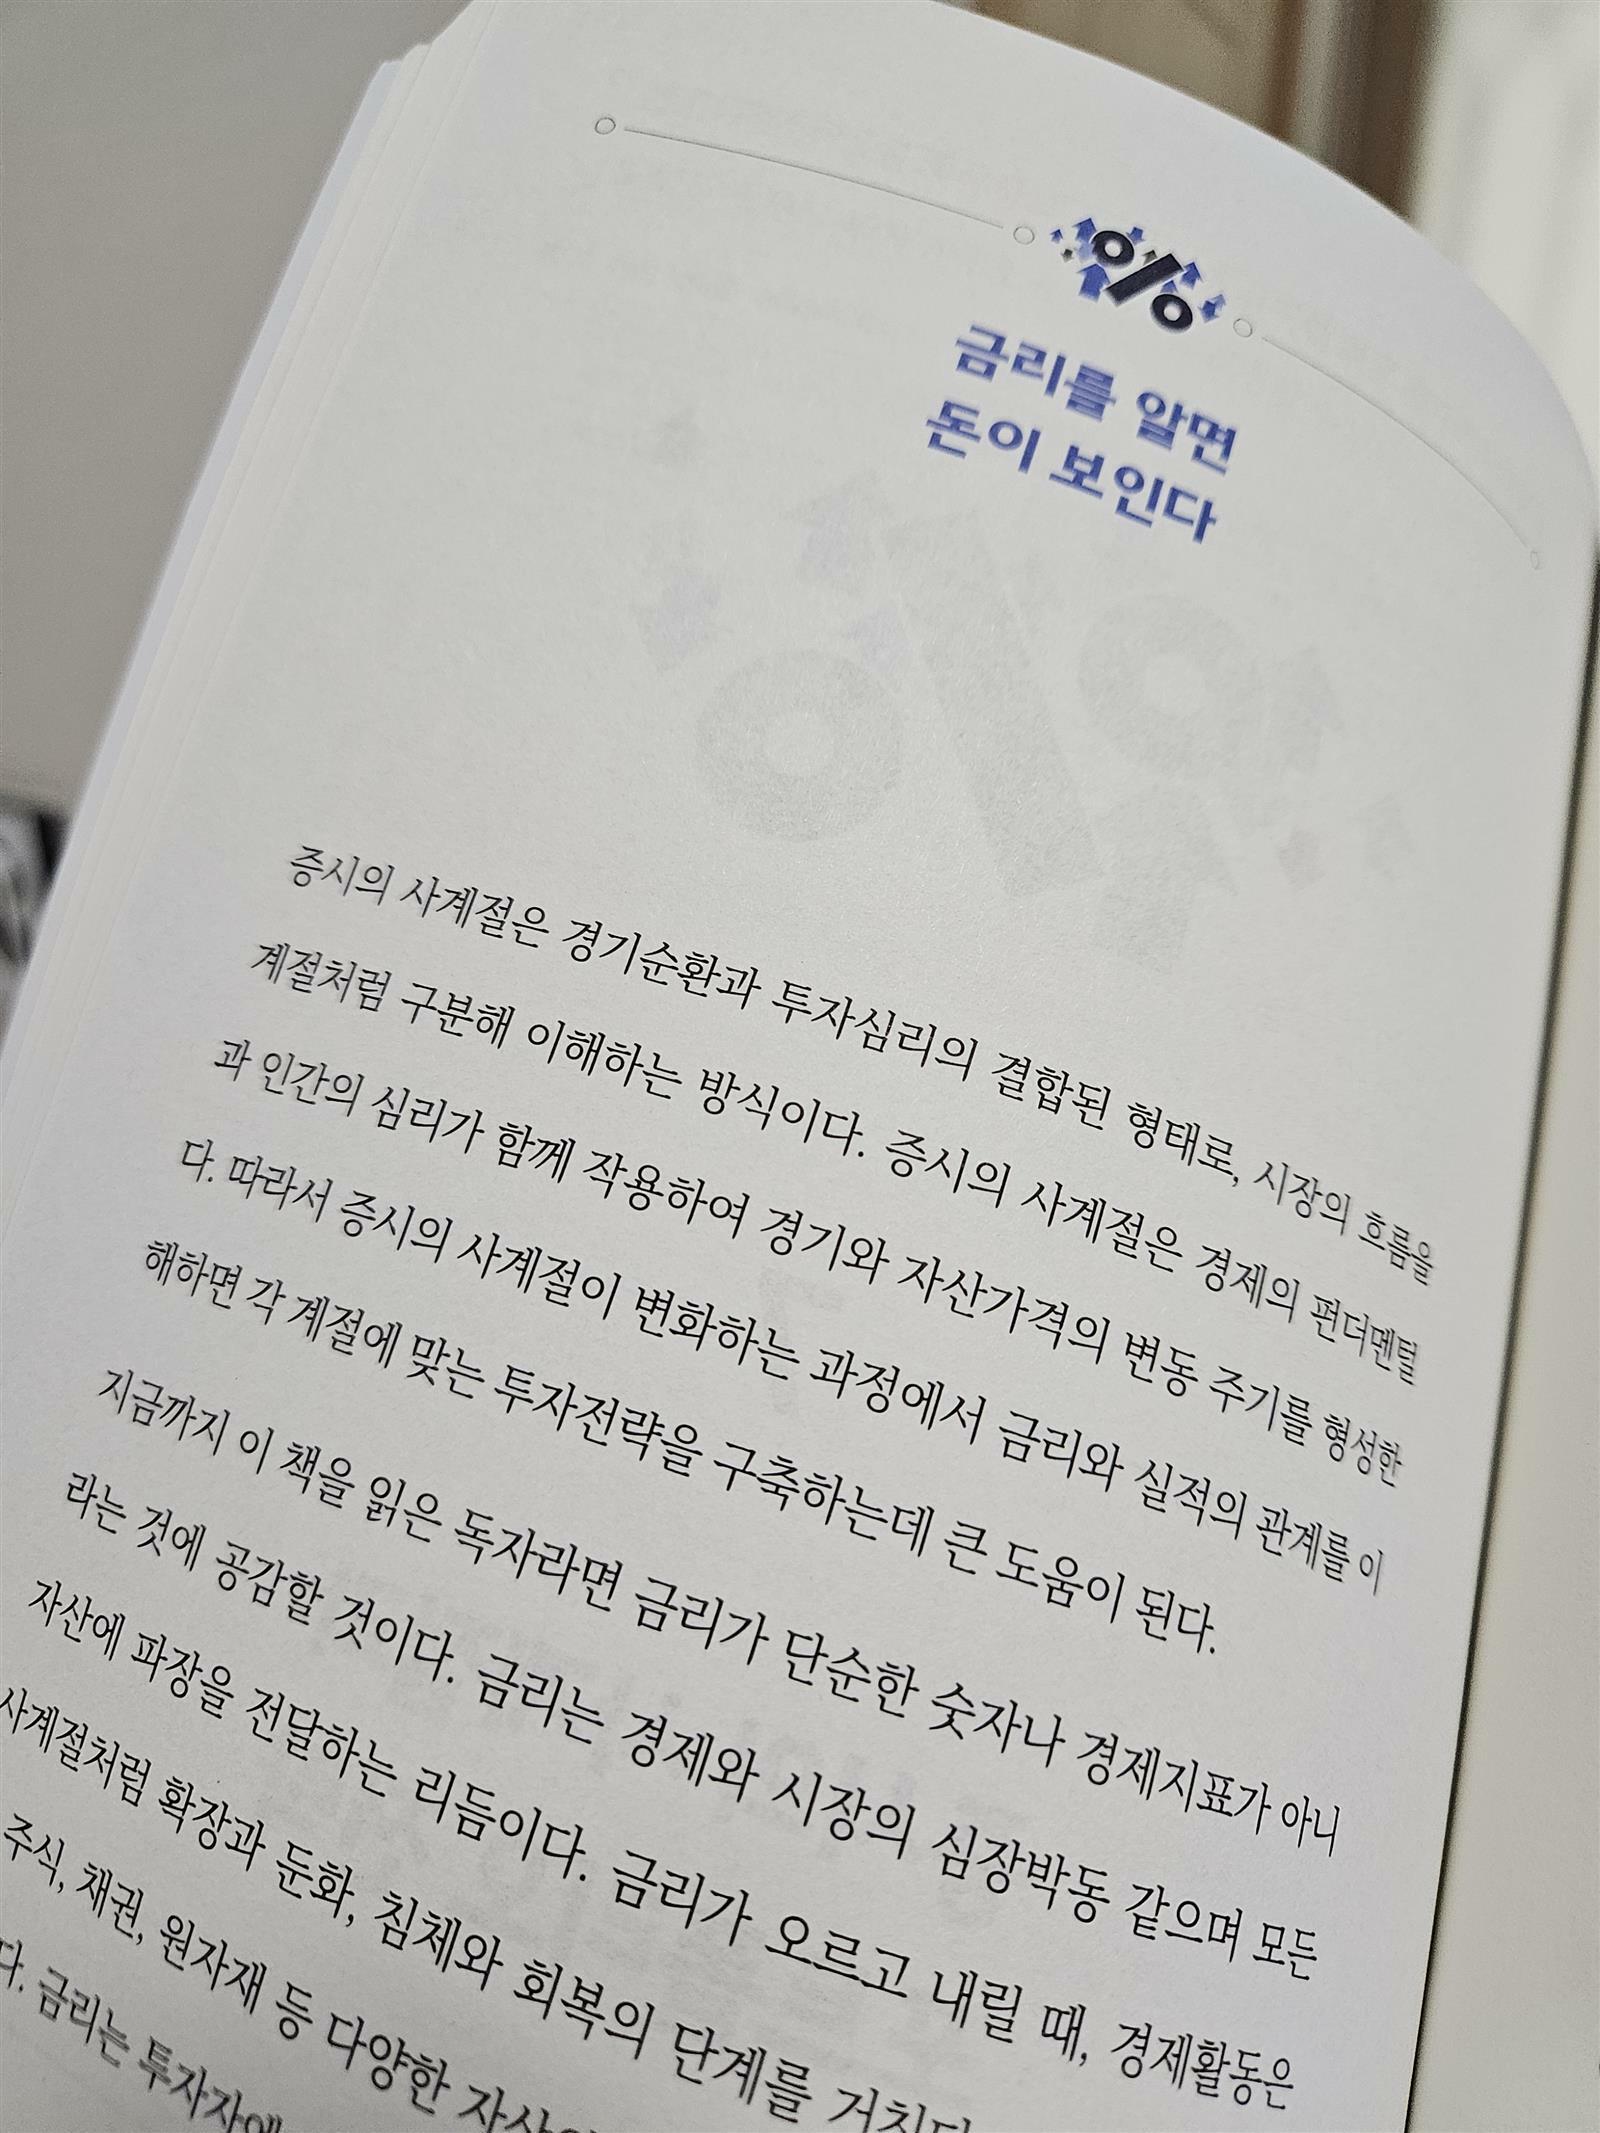 %
금리를 알면
돈이 보인다
증시의 사계절은 경기순환과 투자심리의 결합된 형태로, 시장의 흐름을
계절처럼 구분해 이해하는 방식이다. 증시의 사계절은 경제의 펀더멘털
과 인간의 심리가 함께 작용하여 경기와 자산가격의 변동 주기를 형성한
다. 따라서 증시의 사계절이 변화하는 과정에서 금리와 실적의 관계를 이
해하면 각 계절에 맞는 투자전략을 구축하는데 큰 도움이 된다.
지금까지 이 책을 읽은 독자라면 금리가 단순한 숫자나 경제지표가 아니
라는 것에 공감할 것이다. 금리는 경제와 시장의 심장박동 같으며 모든
자산에 파장을 전달하는 리듬이다. 금리가 오르고 내릴 때, 경제활동은
사계절처럼 확장과 둔화, 침체와 회복의 단계를 거친다
주식, 채권, 원자재 등 다양한
다. 금리는 투자자에